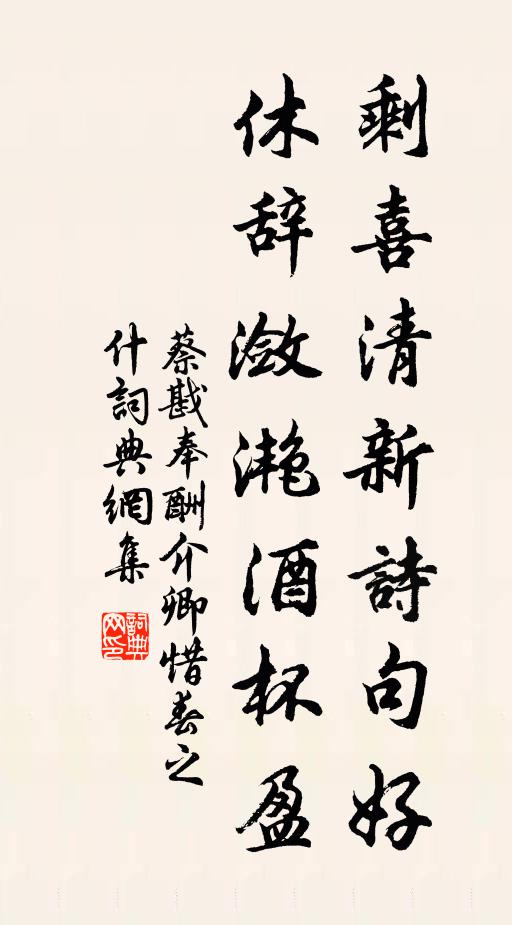 剩喜清新詩句好
休辞潋滟酒杯盈
蔡戡奉酬介卿惜春之
什詞典網集
詞典网印